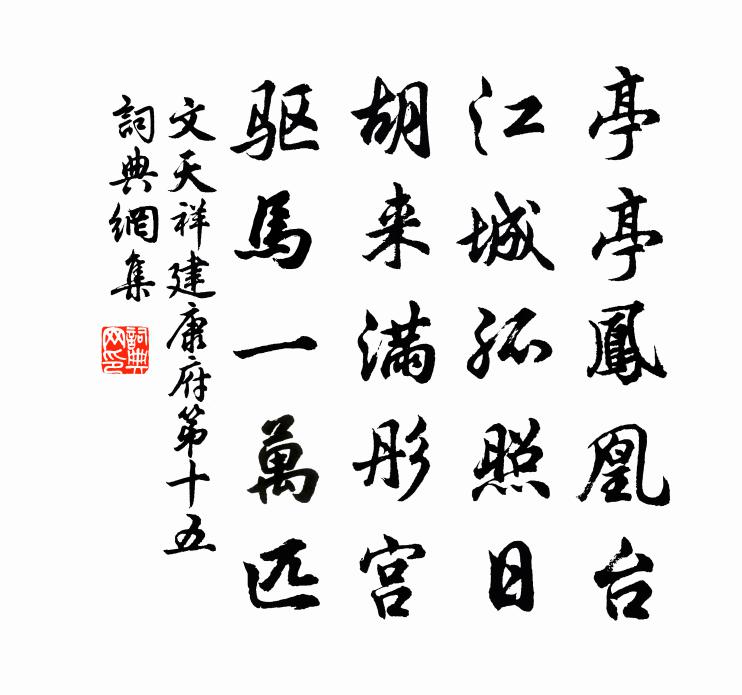 亭亭鳳凰台
江城孤照日
胡来满彤宫
驱馬一萬匹
文天祥建康府第十五
詞典網集
詞典网印